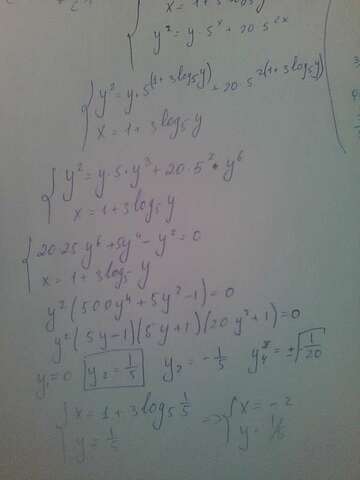 x = 1+3log₅y
y² = y·5ˣ + 20·5²ˣ
y² = y·5^(1+3log₅y) + 20·5^2(1+3log₅y)
x = 1+3log₅y
y² = y·5·y³ + 20·5²·y⁶
x = 1+3log₅y
20·25·y⁶ + 5y⁴ − y² = 0
x = 1+3log₅y
y²(500y⁴ + 5y² − 1) = 0
y²(5y−1)(5y+1)(20y²+1) = 0
y₁=0 y₂ = 1/5 y₂ = −1/5 = ±√1/20
x = 1+3log₅ 1/5 => x = −2
y = 1/5 y = 1/5